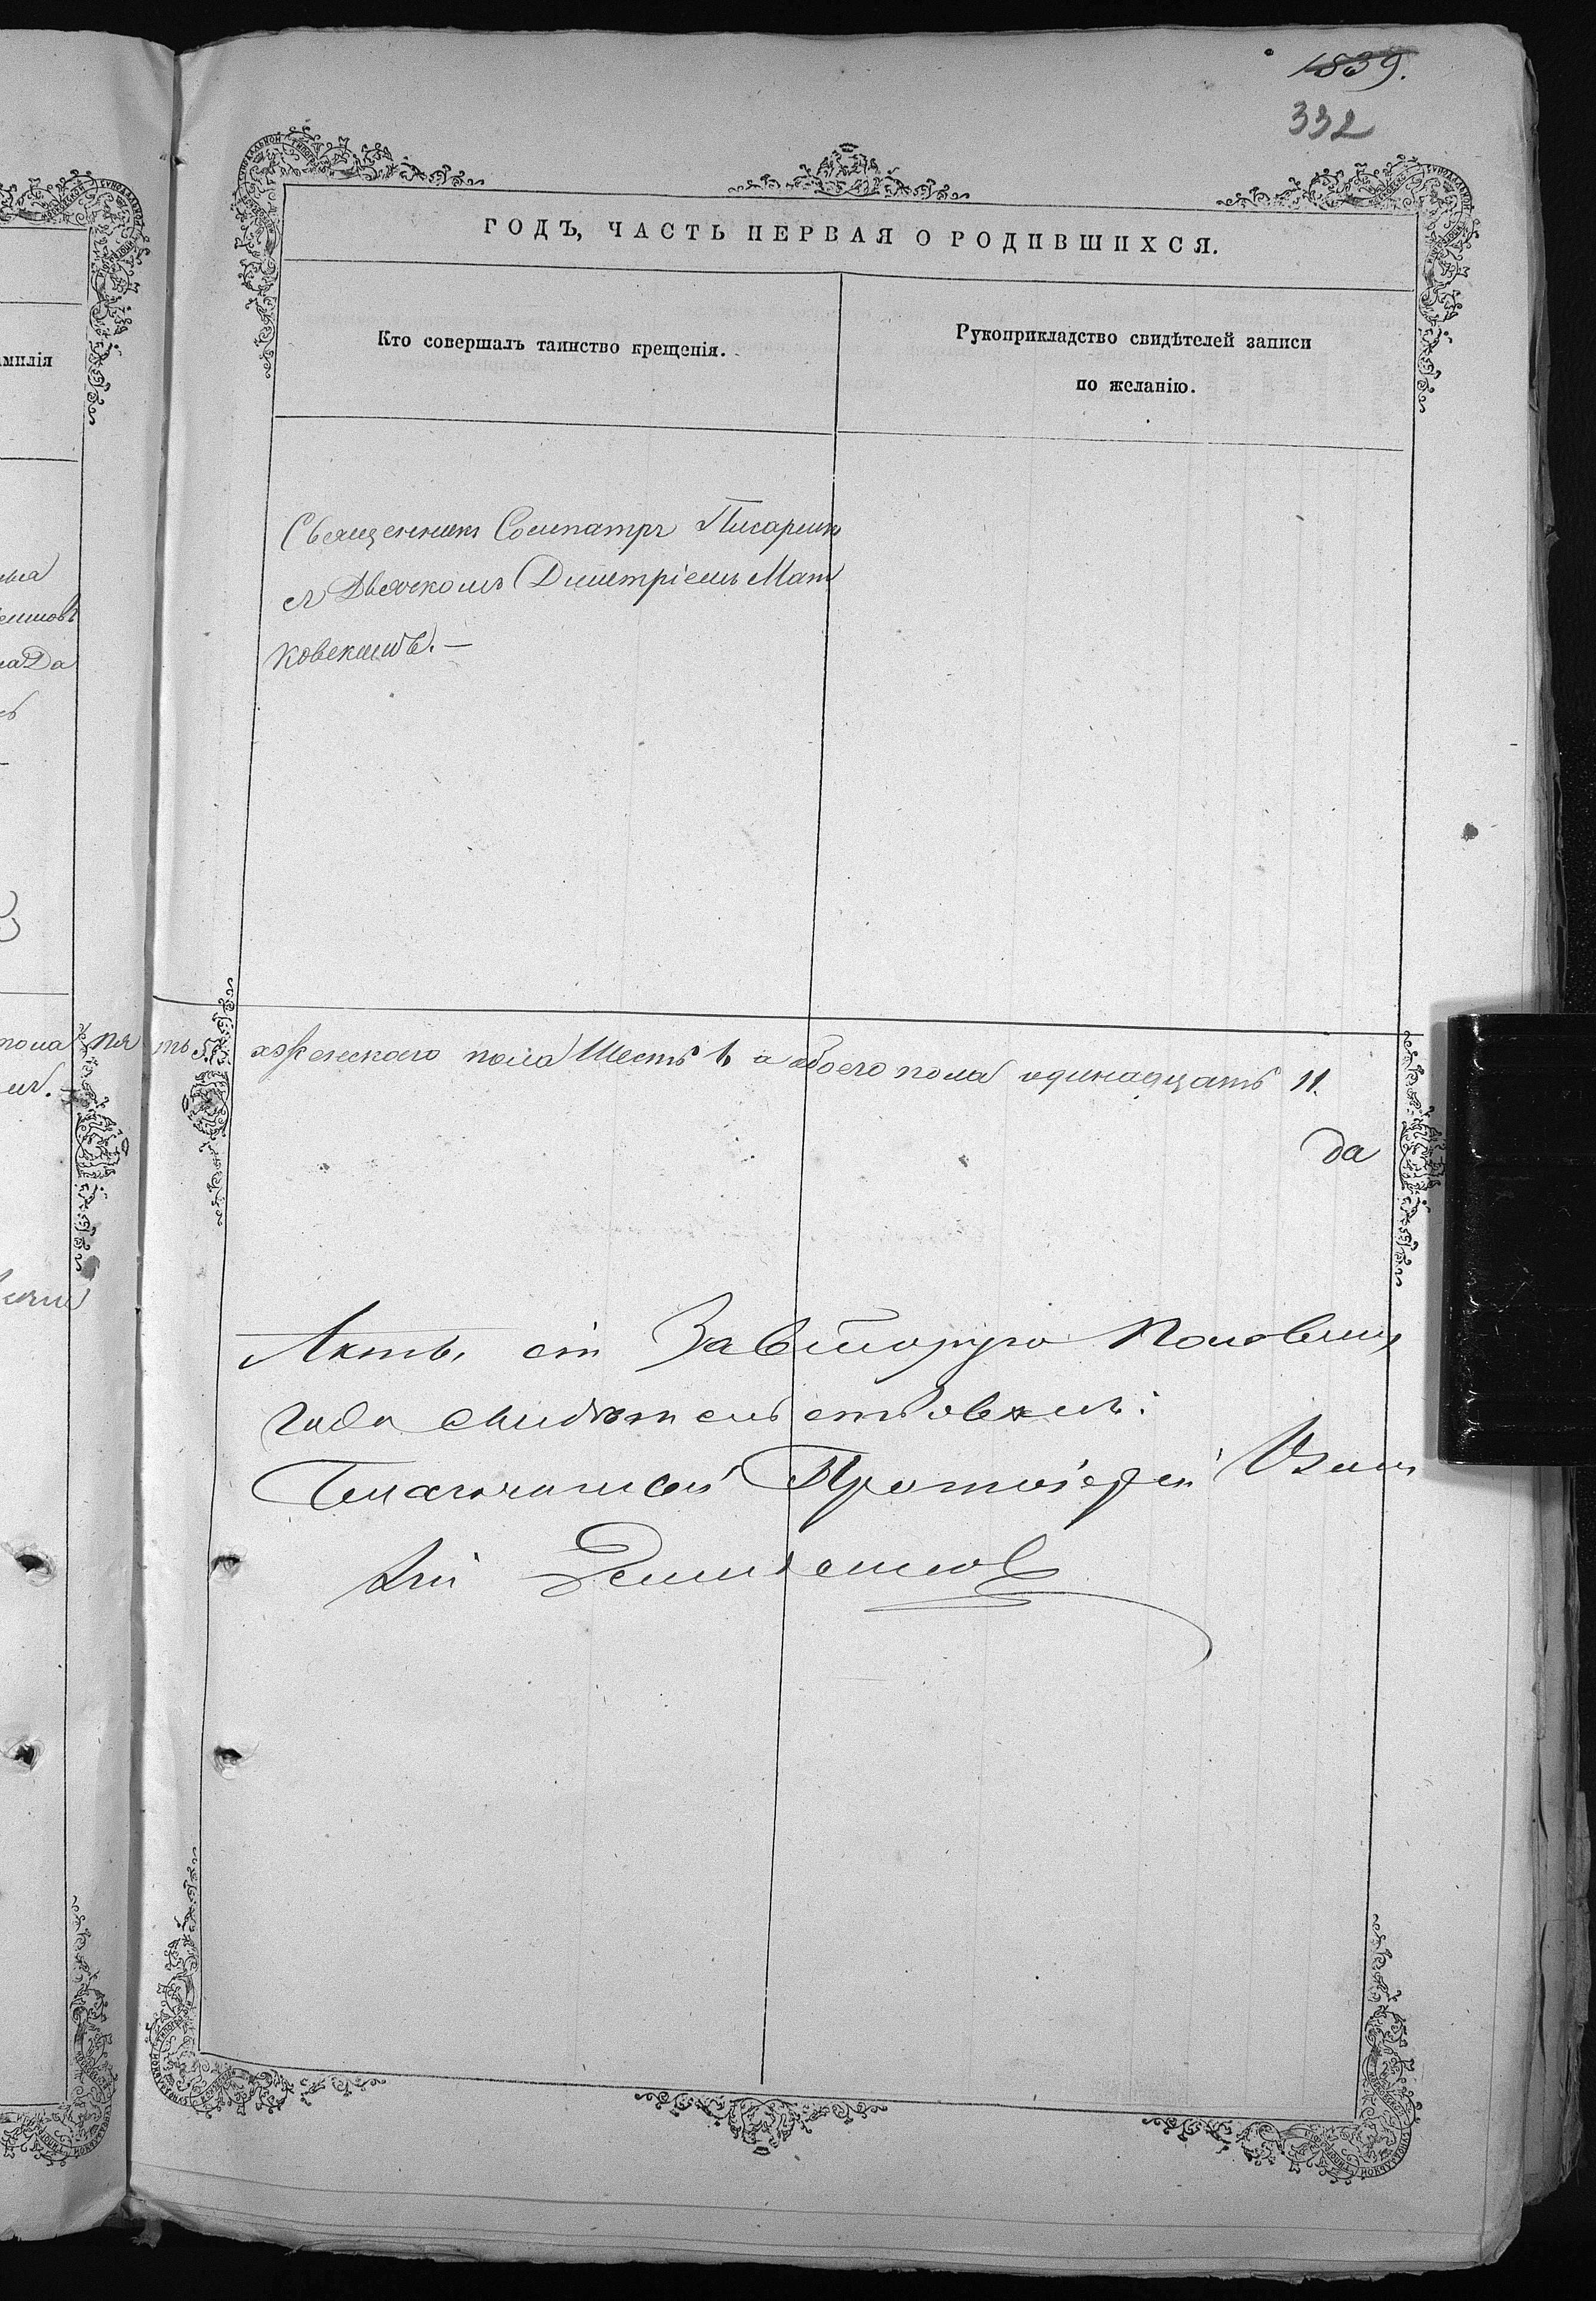 1839.
332
ГОДЪ, ЧАСТЬ ПЕРВАЯ О РОДИВШИХСЯ.
Кто совершалъ таинство крещенія.
Рукоприкладство свидѣтелей записи
по желанію.
милія
Священникъ Сосипатръ Писарев
съ Дьячкомъ Димитріемъ Мат
ковскимъ.—
пола пя ть 5. а женскаго пола Шесть 6 а обоего пола одинадцать 11.
да
Актъ сій За вторую половину
года свидѣтельствовалъ:
Благочинный Протоіерей